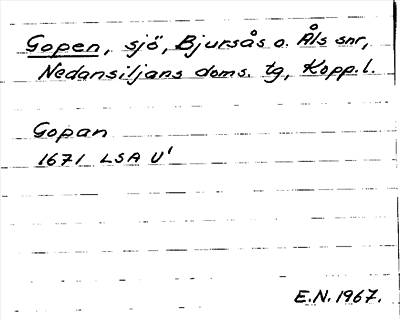 Gopen, sjö, Bjursås o. Åls snr,
Nedansiljans doms. tg, Kopp.l.
Gopan
1671 LSA U'
E.N. 1967.